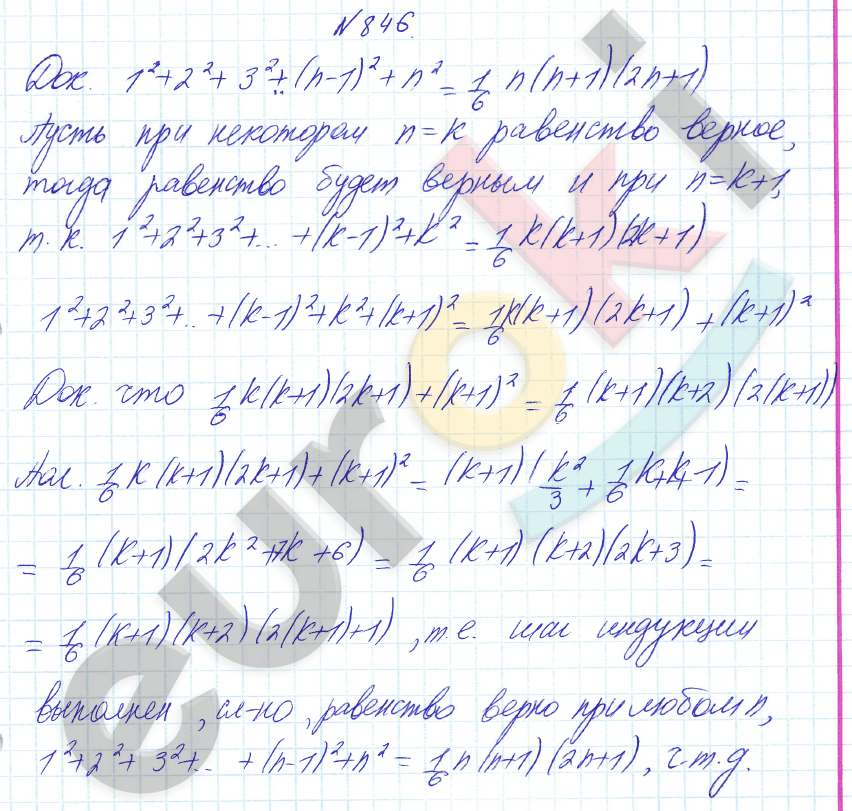 №846.
Док. 1²+2²+3²+..(n-1)²+n² = 1/6 n(n+1)(2n+1)
Пусть при некотором n=k равенство верное,
тогда равенство будет верным и при n=k+1,
т.к. 1²+2²+3²+... +(k-1)²+k² = 1/6 k(k+1)(2k+1)
1²+2²+3²+.. +(k-1)²+k²+(k+1)² = 1/6 k(k+1)(2k+1) + (k+1)²
Док. что 1/6 k(k+1)(2k+1)+(k+1)² = 1/6 (k+1)(k+2)(2(k+1))
Пол. 1/6 k(k+1)(2k+1)+(k+1)² = (k+1)(k²/3 + 1/6 k+k+1) =
= 1/6 (k+1)(2k²+7k+6) = 1/6 (k+1)(k+2)(2k+3) =
= 1/6 (k+1)(k+2)(2(k+1)+1), т.е. шаг индукции
выполнен, сл-но, равенство верно при любом n,
1²+2²+3²+.. +(n-1)²+n² = 1/6 n(n+1)(2n+1), ч.т.д.
euroki